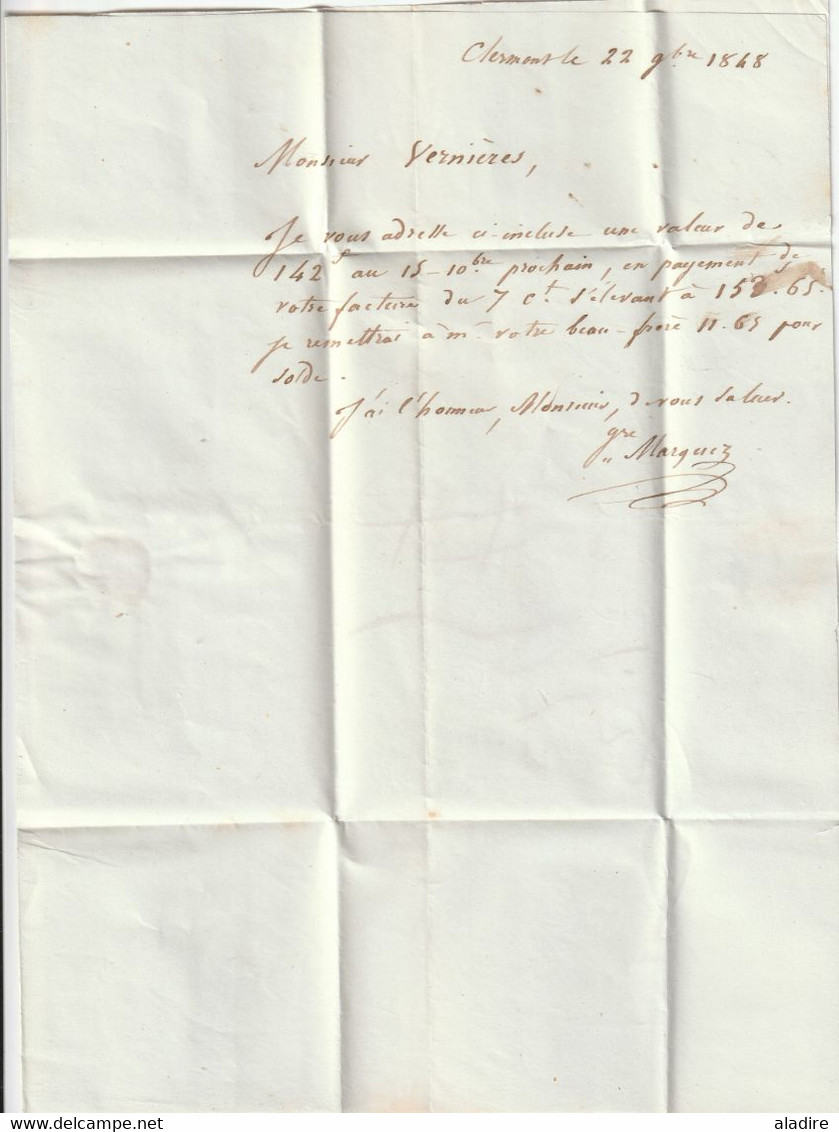 Clermont le 22 9bre 1848
Monsieur Vernières,
Je vous adresse ci-incluse une valeur de
142f au 15-10bre prochain, en payement de
votre facture du 7 ct. s'élevant à 153f.65.
je remettrai à mr votre beau-frère 11.65 pour
solde.
J'ai l'honneur, Monsieur, de vous saluer.
gre
" Marquez
www.delcampe.net
aladire